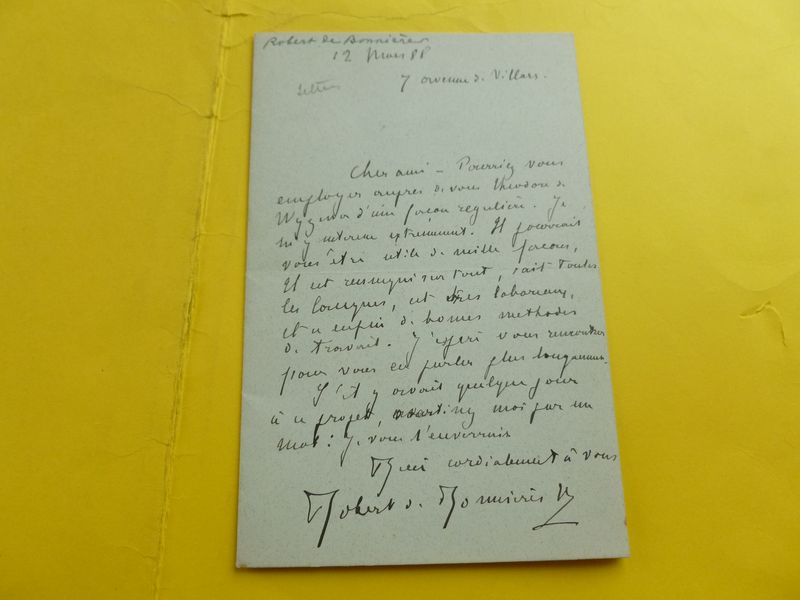 Robert de Bonnières
12 Mars 88
7 avenue de Villars.
Lettres
Cher ami – Pourriez vous
employer auprès de vous Théodore de
Wyzewa d'une façon régulière. Je
m'y intéresse extrêmement. Il pourrait
vous être utile de mille façons,
Il est renseigné sur tout, sait toutes
les langues, est très laborieux,
et a enfin de bonnes méthodes
de travail. J'espère vous rencontrer
pour vous en parler plus longuement.
S'il y avait quelque jour
à ce projet, avertissez moi par un
mot : Je vous l'enverrais
Bien cordialement à vous
Robert de Bonnières